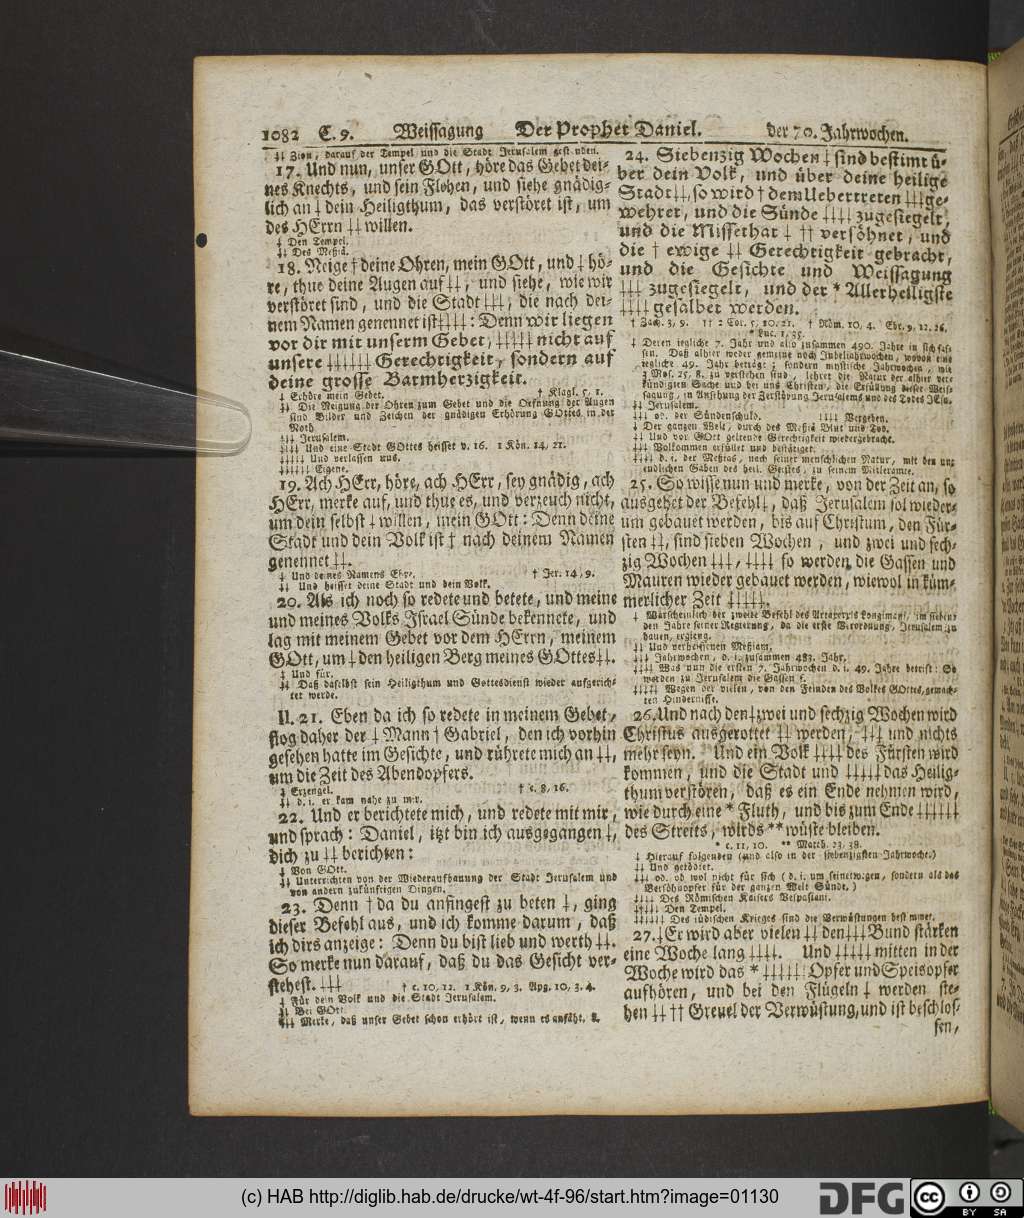 1082 C. 9. Weissagung Der Prophet Daniel. der 70. Jahrwochen.
‡‡ Zion, darauf der Tempel und die Stadt Jerusalem gestanden.
17. Und nun, unser GOtt, höre das Gebet dei-
nes Knechts, und sein Flehen, und siehe gnädig-
lich an ‡ dein Heiligthum, das verstöret ist, um
des HErrn ‡‡ willen.
‡ Den Tempel.
‡‡ Des Meßiä.
18. Neige † deine Ohren, mein GOtt, und ‡ hö-
re, thue deine Augen auf ‡‡, und siehe, wie wir
verstöret sind, und die Stadt ‡‡‡, die nach dei-
nem Namen genennet ist ‡‡‡‡: Denn wir liegen
vor dir mit unserm Gebet, ‡‡‡‡‡ nicht auf
unsere ‡‡‡‡‡‡ Gerechtigkeit, sondern auf
deine grosse Barmherzigkeit.
‡ Erhöre mein Gebet. † Klagl. 5, 1.
‡‡ Die Neigung der Ohren zum Gebet und die Oefnung der Augen
sind Bilder und Zeichen der gnädigen Erhörung GOttes in der
Noth.
‡‡‡ Jerusalem.
‡‡‡‡ Und eine Stadt GOttes heisset v. 16. 1 Kön. 14, 21.
‡‡‡‡‡ Und verlassen uns.
‡‡‡‡‡‡ Eigene.
19. Ach HErr, höre, ach HErr, sey gnädig, ach
HErr, merke auf, und thue es, und verzeuch nicht,
um dein selbst ‡ willen, mein GOtt: Denn deine
Stadt und dein Volk ist † nach deinem Namen
genennet ‡‡.
‡ Und deines Namens Ehre. † Jer. 14, 9.
‡‡ Und heisset deine Stadt und dein Volk.
20. Als ich noch so redete und betete, und meine
und meines Volks Israel Sünde bekennete, und
lag mit meinem Gebet vor dem HErrn, meinem
GOtt, um ‡ den heiligen Berg meines GOttes ‡‡.
‡ Und für.
‡‡ Daß daselbst sein Heiligthum und Gottesdienst wieder aufgerich-
tet werde.
II. 21. Eben da ich so redete in meinem Gebet,
flog daher der ‡ Mann † Gabriel, den ich vorhin
gesehen hatte im Gesichte, und rührete mich an ‡‡,
um die Zeit des Abendopfers.
‡ Erzengel. † c. 8, 16.
‡‡ d. i. er kam nahe zu mir.
22. Und er berichtete mich, und redete mit mir,
und sprach: Daniel, itzt bin ich ausgegangen ‡,
dich zu ‡‡ berichten:
‡ Von GOtt.
‡‡ Unterrichten von der Wiederaufbauung der Stadt Jerusalem und
von andern zukünftigen Dingen.
23. Denn † da du anfingest zu beten ‡, ging
dieser Befehl aus, und ich komme darum, daß
ich dirs anzeige: Denn du bist lieb und werth ‡‡.
So merke nun darauf, daß du das Gesicht ver-
stehest. ‡‡‡ † c. 10, 12. 1 Kön. 9, 3. Apg. 10, 3. 4.
‡ Für dein Volk und die Stadt Jerusalem.
‡‡ Bei GOtt.
‡‡‡ Merke, daß unser Gebet schon erhört ist, wenn es anfäht.
24. Siebenzig Wochen ‡ sind bestimt ü-
ber dein Volk, und über deine heilige
Stadt ‡‡, so wird † dem Uebertreten ‡‡‡ ge-
wehret, und die Sünde ‡‡‡‡ zugesiegelt,
und die Missethat ‡ †† versöhnet, und
die † ewige ‡‡ Gerechtigkeit gebracht,
und die Gesichte und Weissagung
‡‡‡ zugesiegelt, und der * Allerheiligste
‡‡‡‡ gesalbet werden.
† Zach. 3, 9. †† 2 Cor. 5, 10. 21. † Röm. 10, 4. Ebr. 9, 12. 26.
* Luc. 1, 35.
‡ Deren iegliche 7. Jahr und also zusammen 490. Jahre in sich fas-
sen. Daß alhier weder gemeine noch Jubeljahrwochen, wovon eine
iegliche 49. Jahr beträgt; sondern mystische Jahrwochen, wie
3 Mos. 25, 8. zu verstehen sind, lehret die Natur der alhier ver-
kündigten Sache und bei uns Christen, die Erfüllung dieser Weis-
sagung, in Ansehung der Zerstörung Jerusalems und des Todes JEsu.
‡‡ Jerusalem.
‡‡‡ od. der Sündenschuld. ‡‡‡‡ Vergeben.
‡ Der ganzen Welt, durch des Meßiä Blut und Tod.
‡‡ Und vor GOtt geltende Gerechtigkeit wiedergebracht.
‡‡‡ Vollkommen erfüllet und bestätiget.
‡‡‡‡ d. i. der Meßias, nach seiner menschlichen Natur, mit den un-
endlichen Gaben des heil. Geistes, zu seinem Mitleramte.
25. So wisse nun und merke, von der Zeit an, so
ausgehet der Befehl ‡, daß Jerusalem sol wieder-
um gebauet werden, bis auf Christum, den Für-
sten ‡‡, sind sieben Wochen, und zwei und sech-
zig Wochen ‡‡‡, ‡‡‡‡ so werden die Gassen und
Mauren wieder gebauet werden, wiewol in küm-
merlicher Zeit ‡‡‡‡‡.
‡ Warscheinlich der zweite Befehl des Artaxerxis Longimani, im siebenden
den Jahre seiner Regierung, da die erste Verordnung, Jerusalem zu
bauen, erging.
‡‡ Und verheissenen Meßiam,
‡‡‡ Jahrwochen, d. i. zusammen 483. Jahr,
‡‡‡‡ Was nun die ersten 7. Jahrwochen d. i. 49. Jahre betrift: So
werden zu Jerusalem die Gassen ꝛc.
‡‡‡‡‡ Wegen der vielen, von den Feinden des Volkes GOttes, gemach-
ten Hindernisse.
26. Und nach den ‡ zwei und sechzig Wochen wird
Christus ausgerottet ‡‡ werden, ‡‡‡ und nichts
mehr seyn. Und ein Volk ‡‡‡‡ des Fürsten wird
kommen, und die Stadt und ‡‡‡‡‡ das Heilig-
thum verstören, daß es ein Ende nehmen wird,
wie durch eine * Fluth, und bis zum Ende ‡‡‡‡‡‡
des Streits, wirds ** wüste bleiben.
* c. 11, 10. ** Matth. 23, 38.
‡ Hierauf folgenden (und also in der siebenzigsten Jahrwoche.)
‡‡ Und getödtet.
‡‡‡ od. ob wol nicht für sich (d. i. um seinetwegen, sondern als das
Versöhnopfer für der ganzen Welt Sünde.)
‡‡‡‡ Des Römischen Kaisers Vespasiani.
‡‡‡‡‡ Den Tempel.
‡‡‡‡‡‡ Des jüdischen Krieges sind die Verwüstungen bestimmet.
27. ‡ Er wird aber vielen ‡‡ den ‡‡‡ Bund stärken
eine Woche lang ‡‡‡‡. Und ‡‡‡‡‡ mitten in der
Woche wird das * ‡‡‡‡‡‡ Opfer und Speisopfer
aufhören, und bei den Flügeln ‡ werden ste-
hen ‡‡ †† Greuel der Verwüstung, und ist beschlos-
sen,
(c) HAB http://diglib.hab.de/drucke/wt-4f-96/start.htm?image=01130
DFG
cc BY SA